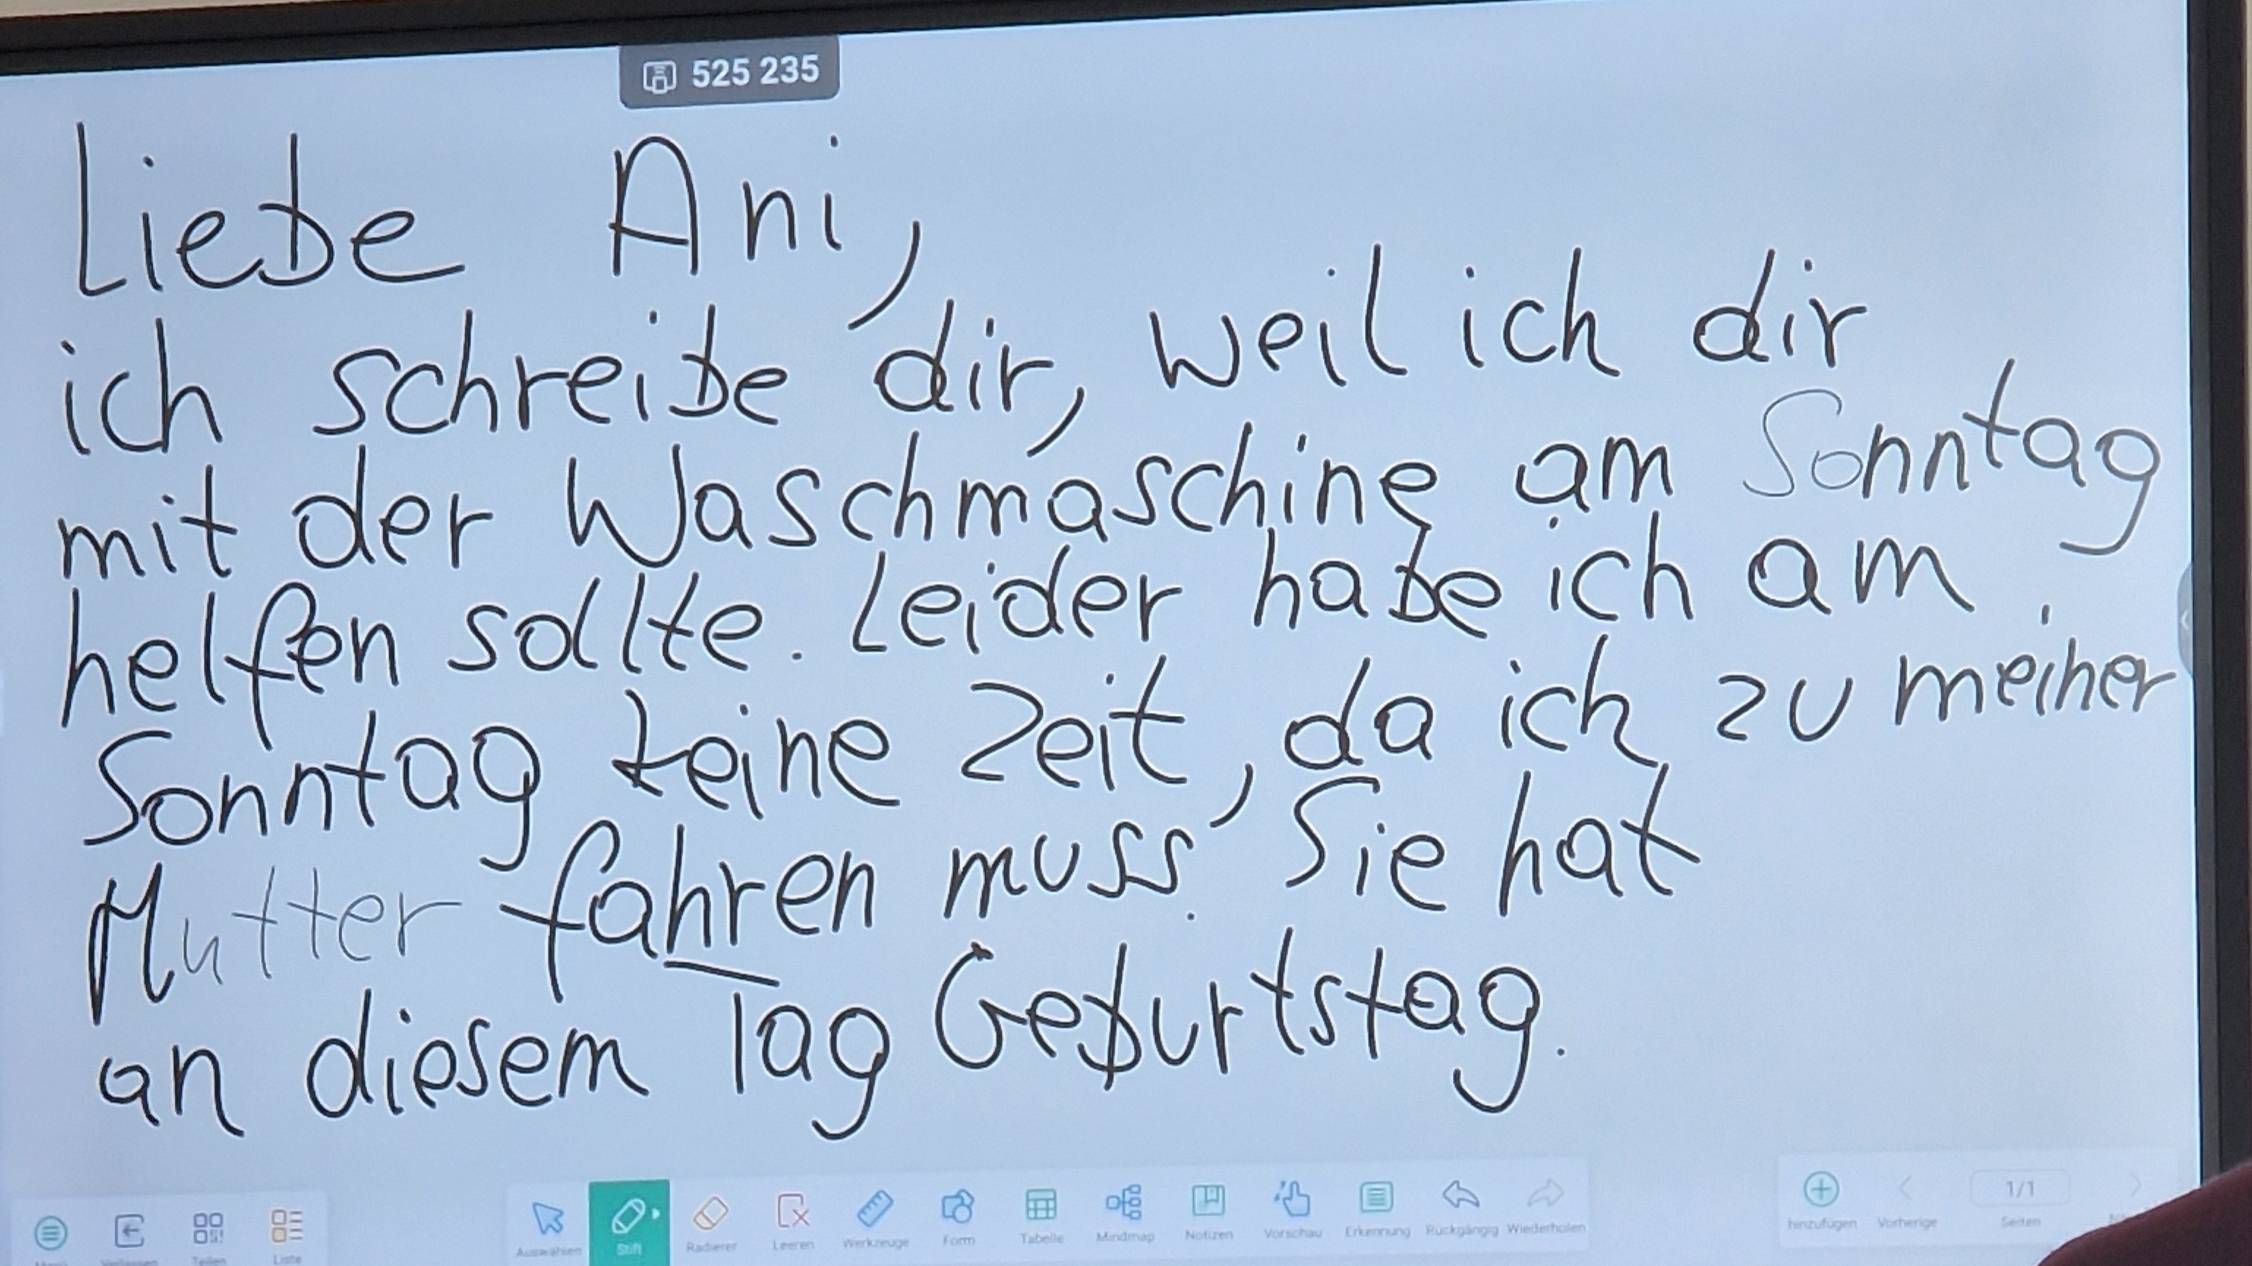 525 235
Liebe Ani,
ich schreibe dir, weil ich dir
mit der Waschmaschine am Sonntag
helfen sollte. Leider habe ich am
Sonntag keine Zeit, da ich zu meiner
Mutter fahren muss. Sie hat
an diesem Tag Geburtstag.
Auswählen Stift Radierer Leeren Werkzeuge Form Tabelle Mindmap Notizen Vorschau Erkennung Rückgängig Wiederholen
hinzufügen Vorherige 1/1 Seiten
Menü Verlassen Teilen Liste